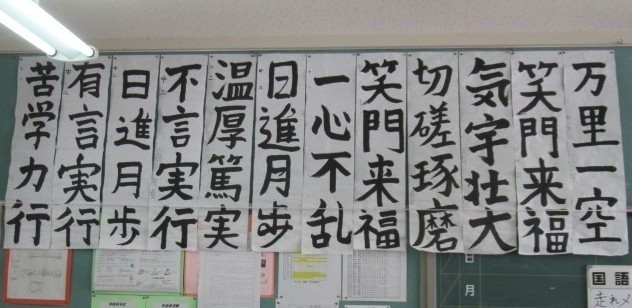 万里一空
笑門来福
気宇壮大
切磋琢磨
笑門来福
一心不乱
日進月歩
温厚篤実
不言実行
日進月歩
有言実行
苦学力行
日
月
国語